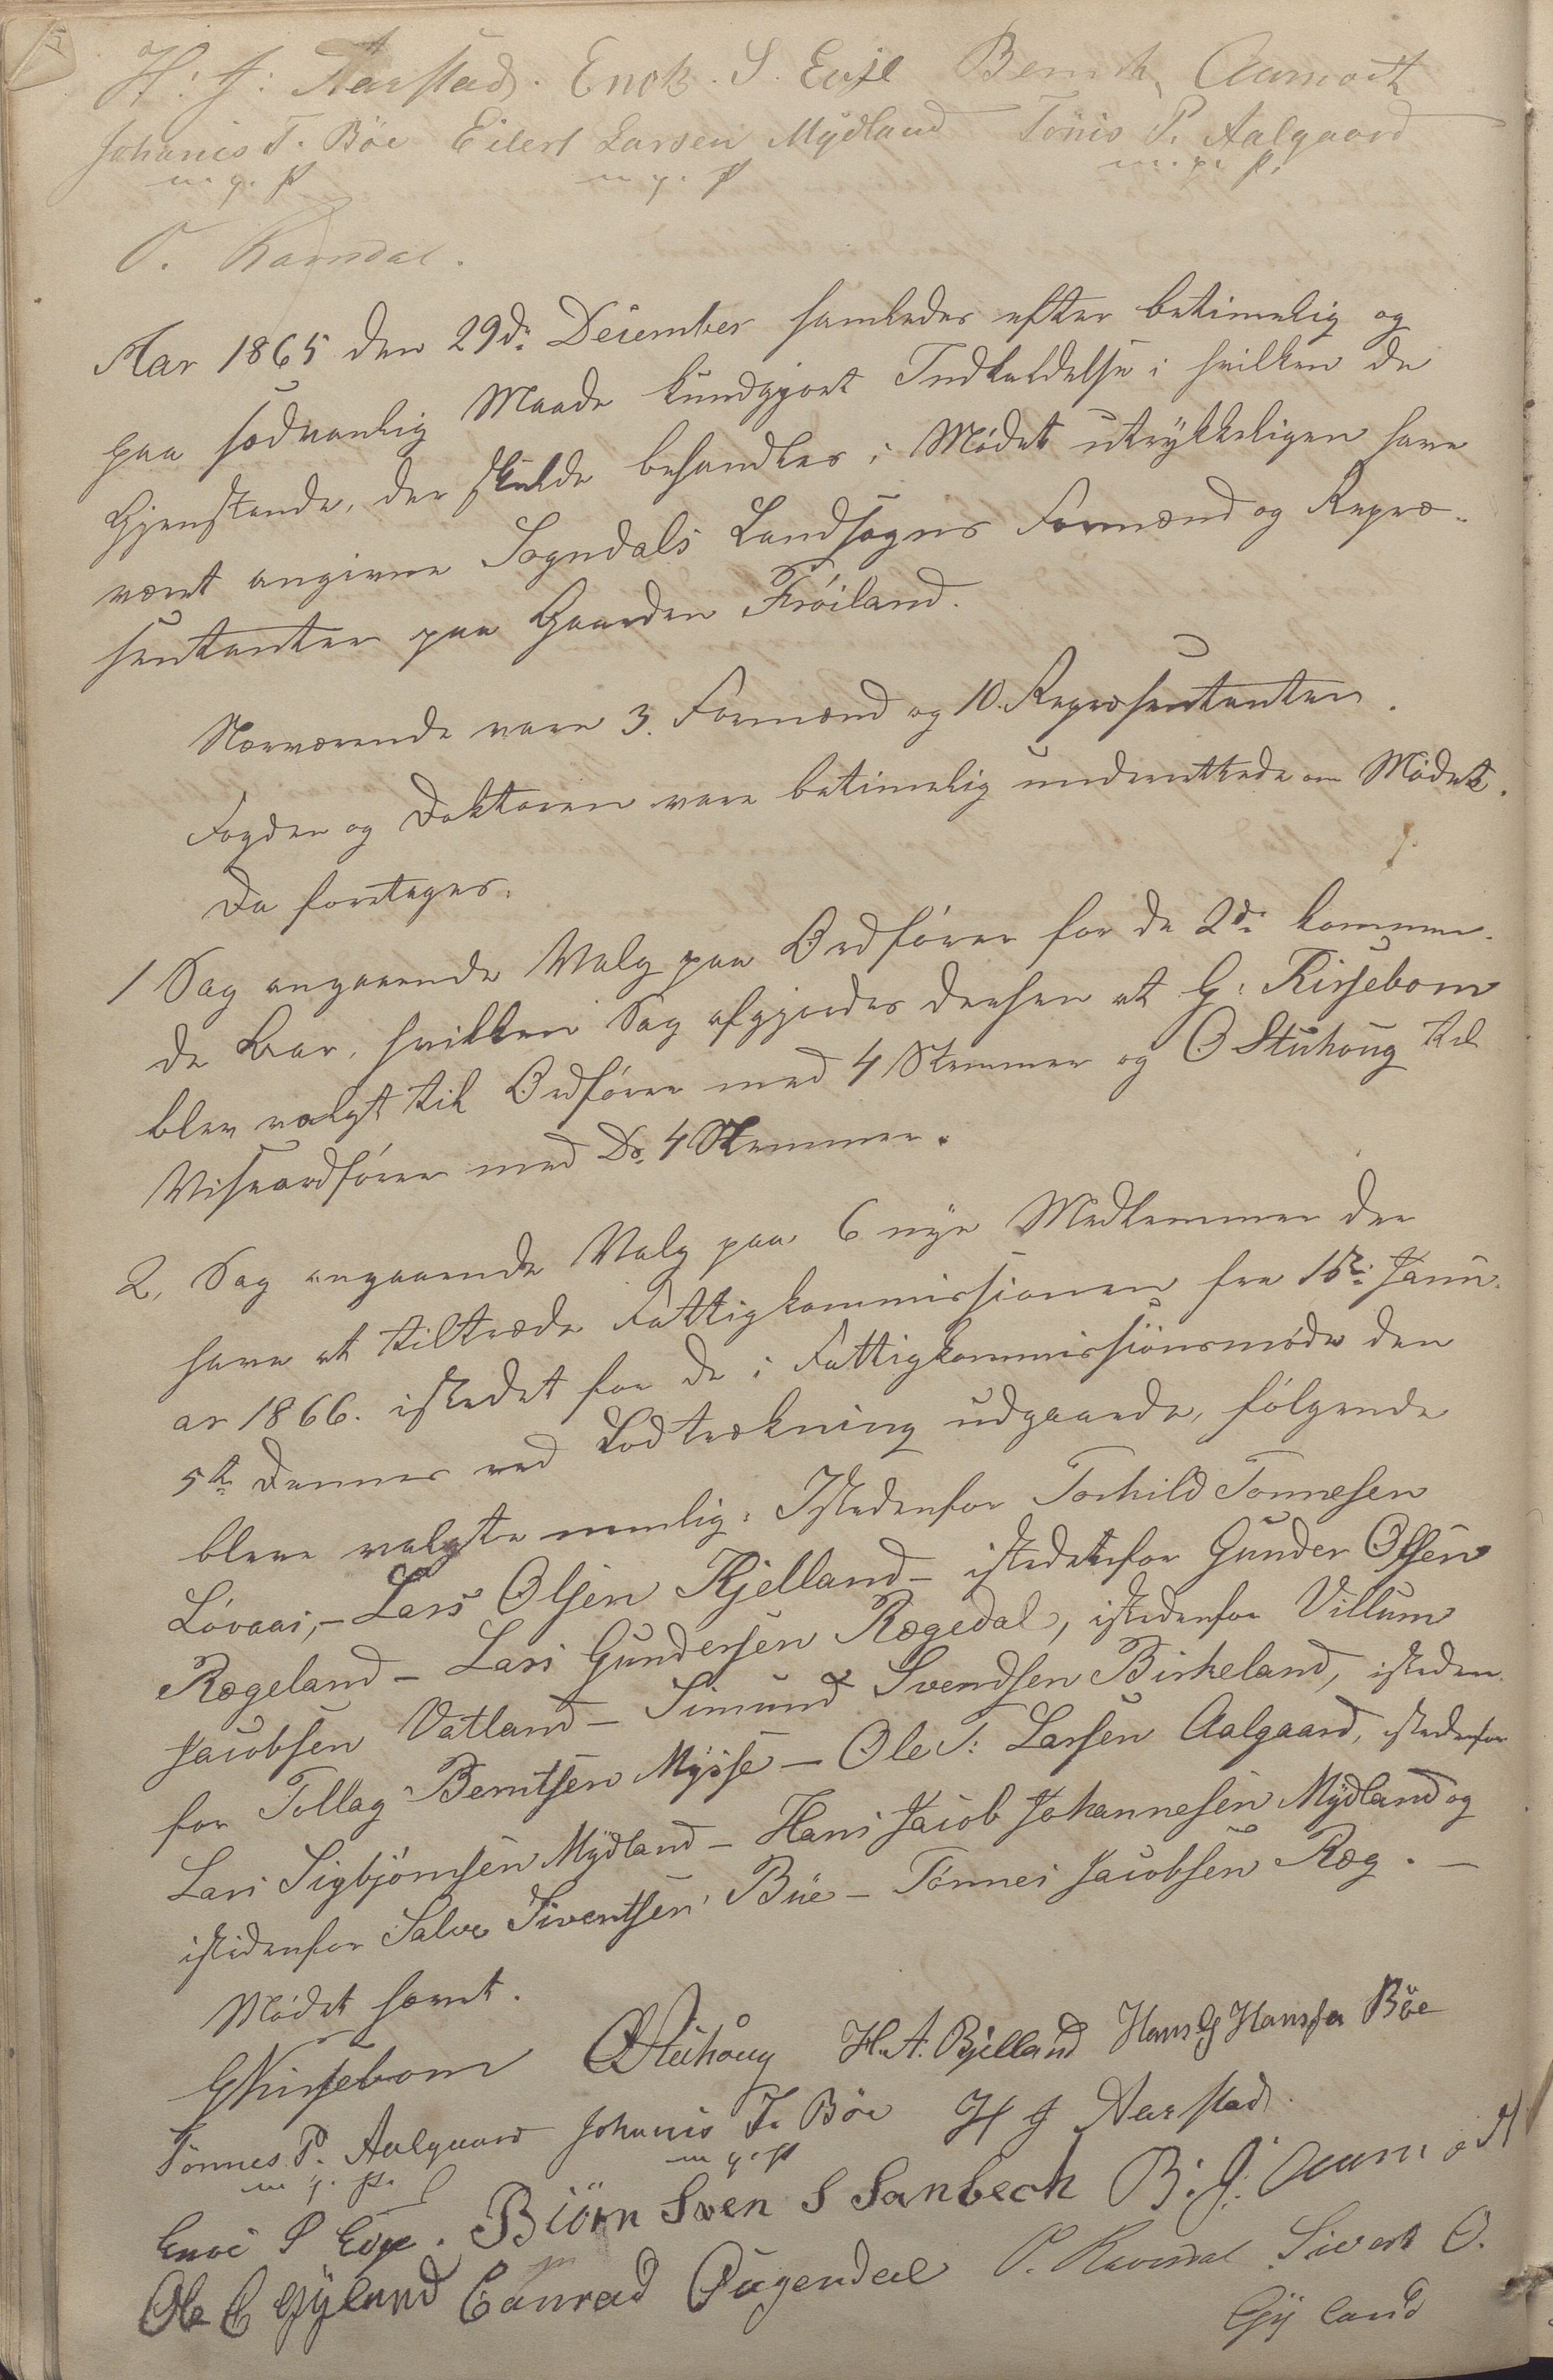 H: J: Aarstad. Enok. S. Eeje Bernt Aamodt
Johanis T. Böe Eilert Larsen Mydland Tönis P. Aalgaard
m. p. P m. p. P m. p. P.
O. Ravndal.
Aar 1865 den 29de December samledes efter betimelig og
paa sædvanlig Maade kundgjort Indkaldelse i hvilken de
Gjenstande, der skulde behandles i Mödet utrykkeligen have
været angivne Sogndals Landsogns Formænd og Repræ-
sentanter paa Gaarden Fröiland.
Nærværende vare 3. Formænd og 10. Repræsentanter.
Fogden og Doktoren vare betimelig underrettede om Mödet.
Da foretages.
1 Sag angaaende Valg paa Ordförer for de 2de kommen-
de Aar, hvilken Sag afgjordes derhen at G: Kirsebom
blev valgt til Ordförer med 4 Stemmer og O Stuhoug til
Viseordförer med Do. 4 Stemmer.
2, Sag angaaende Valg paa 6 nye Medlemmer der
have at tiltræde Fattigkommissionen fra 1ste Janu-
ar 1866. istedet for de i Fattigkommissionsmöde den
5te Dennes ved Lodtrækning udgaaede, fölgende
bleve valgte nemlig: Istedenfor Torkild Tonnesen
Lövaas, - Lars Olsen Kjelland - istedetnfor Gunder Olsen
Rægeland - Lars Gundersen Rægedal, istedenfor Villum
Jacobsen Vatland - Simund Svendsen Birkeland, isteden-
for Tollag Berntsen Mysse - Ole S: Larsen Aalgaard, istedenfor
Lars Sigbjörnsen Mydland - Hans Jacob Johannesen Mydland og
istedenfor Salve Siventsen Büe - Tönnes Jacobsen Ræg. -
Mödet hævet.
GKirsebom OStuhoug H. A. Bjelland Hans G Hansen Böe
Tönnes P. Aalgaard Johanis T. Böe H J Aarstad
m. p. P. m. p. P
Enoc S Eeje. Biörn Sven S Sanbech B. J. Aamodt
Ole C Gyland Conrad Ougendal O. Ravndal Sivert O.
Gyland